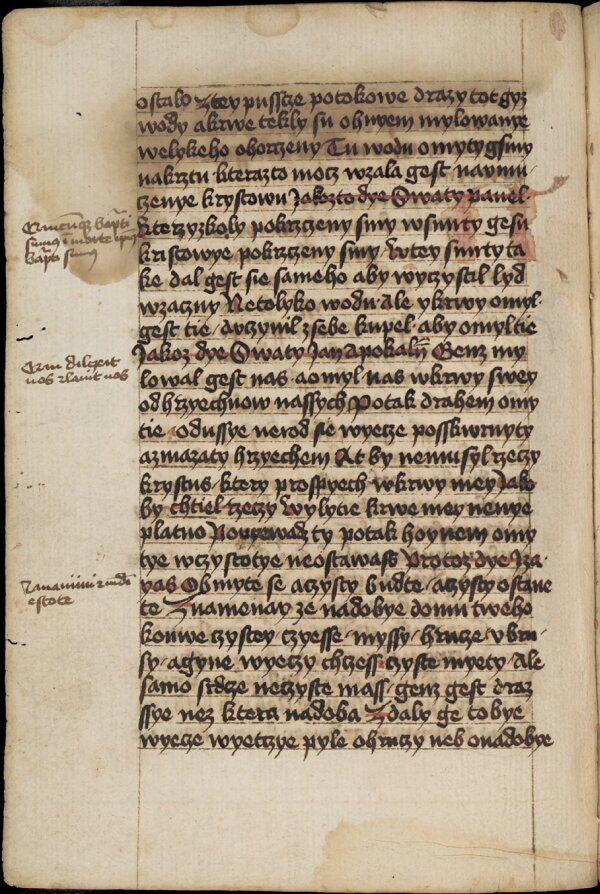 ostalo Ztey pusscze potokowe drazy tot gyz
wody akrwe tekly su ohnyem mylowanye
welykeho ohorzeny Tu wodu omyty gsmy
nakrztu kterazto mocz wzala gest navmu
czenye krystowu Jakozto dye Swaty pavel
kterzyzkoly pokrzczeny smy wsmrty gesu
kristowye pokrzczeny smy Wtey smrty ta
ke dal gest sie sameho aby wyczystil lyd
wzaczny Netolyko wodu Ale ykrwy omyl
gest tie vczynil zsebe kupel aby omyl tie
Jakoz dye Swaty Jan Apokalii Genz my
lowal gest nas aomyl nas wkrwy swey
odhrzyechuow nassych Potak drahem omy
tie odussye nerod sie wyecze posskwrnyty
azmazaty hrzyechem At by nemusyl rzeczy
krystus ktery prospyech wkrwy mey Jako
by chtiel rzeczy Wylytie krwe mey nenye
platno potak hoynem omy
tye wczystotye neostawass Protoz dye Iza
yas Obmyte se aczysty budte aczysty ostane
te Znamenay ze nadobye domu tweho
konwe czystey czyesse myssy hrncze vbru
sy agyne wyeczy chczess czyste myety Ale
samo srdcze neczyste mass genz gest draz
ssye nez ktera nadoba Zdaly ge tobye
wyecze wyetczye pyle ohrnczy neb onadobye
sumus
sumus
Cum dilexit
nos z lavit nos
estote